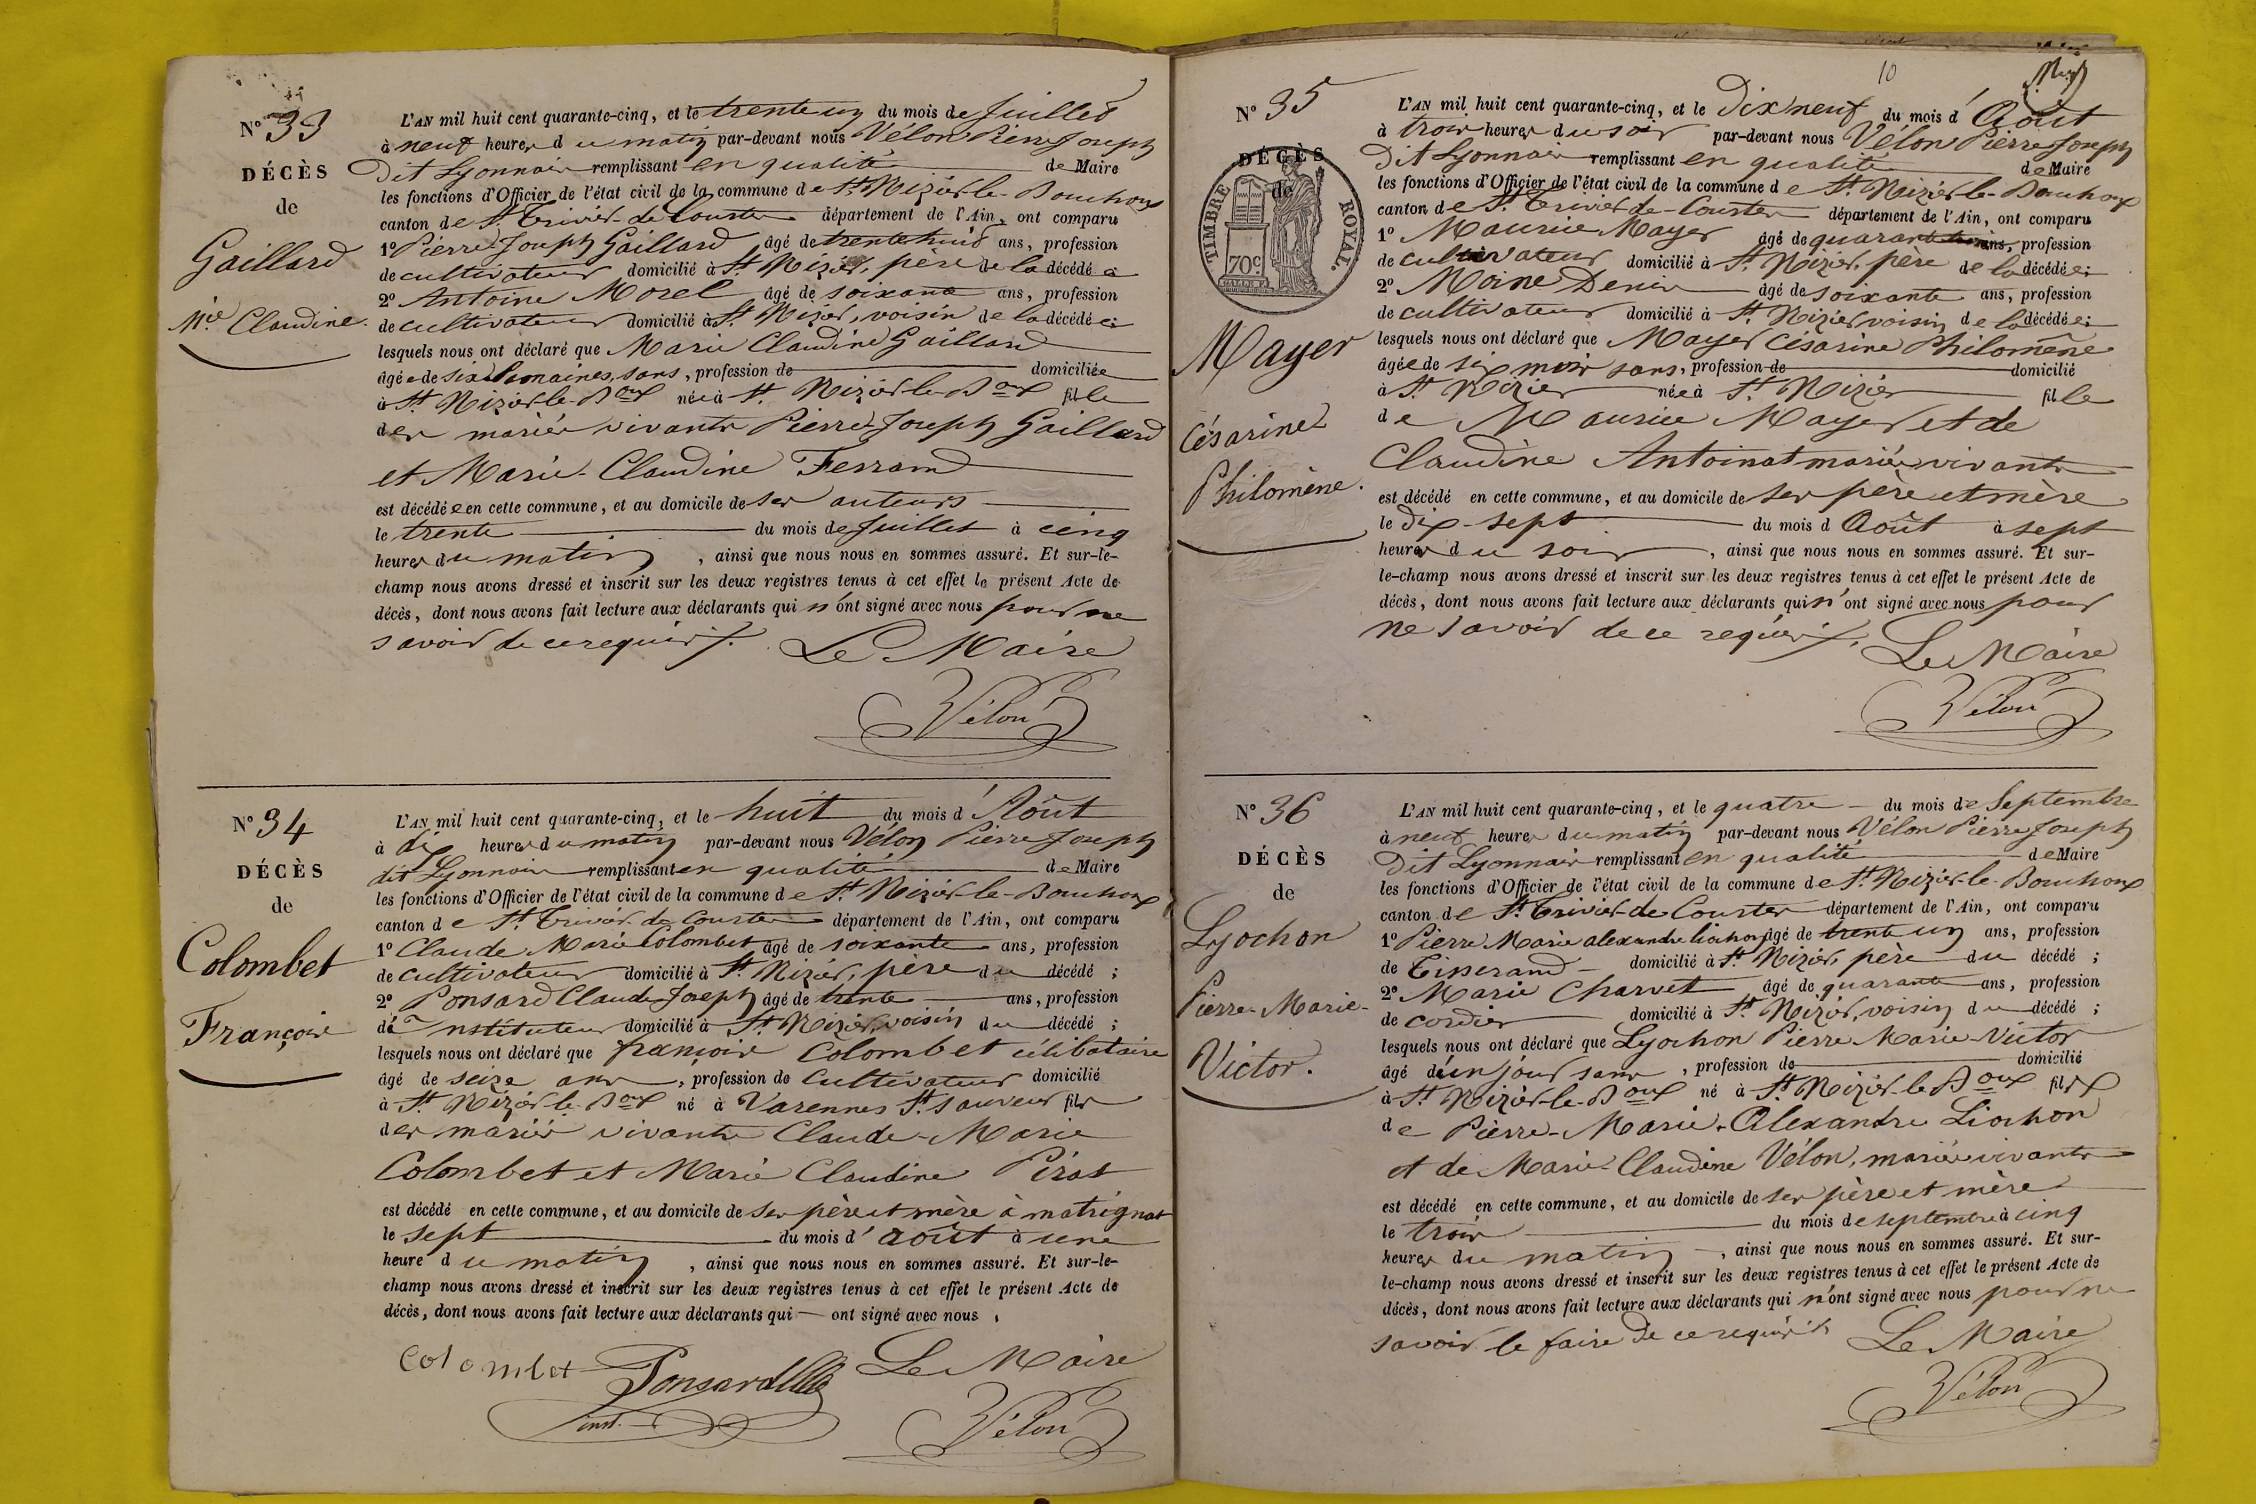 N° 33
DÉCÈS
de
Gaillard
Mie Claudine.
L'AN mil huit cent quarante-cinq, et le trente un du mois de Juillet
à neuf heures du matin par-devant nous Vélon Pierre Joseph
Dit Lyonnais remplissant en qualité de Maire
les fonctions d'Officier de l'état civil de la commune de St. Nizier-le-Bouchoux
canton de St. Trivier-de-Courtes département de l'Ain, ont comparu
1° Pierre Joseph Gaillard âgé de trente huit ans, profession
de cultivateur domicilié à St. Nizier, père de la décédée
2° Antoine Morel âgé de soixante ans, profession
de cultivateur domicilié à St. Nizier, voisin de la décédée;
lesquels nous ont déclaré que Marie Claudine Gaillard
âgée de six semaines, sans, profession de domiciliée
à St. Nizier-le-Boux née à St. Nizier-le-Boux fille
des mariés vivants Pierre Joseph Gaillard
et Marie-Claudine Ferrand
est décédée en cette commune, et au domicile de ses auteurs
le trente du mois de Juillet à cinq
heures du matin, ainsi que nous nous en sommes assuré. Et sur-le-
champ nous avons dressé et inscrit sur les deux registres tenus à cet effet le présent Acte de
décès, dont nous avons fait lecture aux déclarants qui n'ont signé avec nous pour ne
savoir de ce requis.
Le Maire
Vélon
N° 34
DÉCÈS
de
Colombet
François
L'AN mil huit cent quarante-cinq, et le huit du mois d'Août
à dix heures du matin par-devant nous Vélon Pierre Joseph
dit Lyonnais remplissant en qualité de Maire
les fonctions d'Officier de l'état civil de la commune de St. Nizier-le-Bouchoux
canton de St. Trivier-de-Courtes département de l'Ain, ont comparu
1° Claude Marie Colombet âgé de soixante ans, profession
de cultivateur domicilié à St. Nizier, père du décédé ;
2° Ponsard Claude Joseph âgé de trente ans, profession
d'instituteur domicilié à St. Nizier, voisin du décédé ;
lesquels nous ont déclaré que françois Colombet célibataire
âgé de seize ans, profession de cultivateur domicilié
à St. Nizier-le-Boux né à Varennes St. Sauveur fils
des mariés vivants Claude-Marie
Colombet et Marie Claudine Pirat
est décédé en cette commune, et au domicile de ses père et mère à matrignat
le sept du mois d'août à une
heure du matin, ainsi que nous nous en sommes assuré. Et sur-le-
champ nous avons dressé et inscrit sur les deux registres tenus à cet effet le présent Acte de
décès, dont nous avons fait lecture aux déclarants qui — ont signé avec nous.
Colombet Ponsard Le Maire
inst. Vélon
10
N° 35
DÉCÈS
de
TIMBRE ROYAL.
70c
Mayer
Césarine
Philomène.
L'AN mil huit cent quarante-cinq, et le Dix neuf du mois d'Août
à trois heures du soir par-devant nous Vélon Pierre Joseph
Dit Lyonnais remplissant en qualité de Maire
les fonctions d'Officier de l'état civil de la commune de St. Nizier-le-Bouchoux
canton de St. Trivier-de-Courtes département de l'Ain, ont comparu
1° Maurice Mayer âgé de quarante ans, profession
de cultivateur domicilié à St. Nizier, père de la décédée;
2° Moine Denis âgé de soixante ans, profession
de cultivateur domicilié à St. Nizier voisin de la décédée;
lesquels nous ont déclaré que Mayer Césarine Philomène
âgée de six mois sans, profession de domicilié
à St. Nizier née à St. Nizier fille
de Maurice Mayer et de
Claudine Antoinat mariés vivants
est décédé en cette commune, et au domicile de ses père et mère
le dix-sept du mois d'Août à sept
heures du soir, ainsi que nous nous en sommes assuré. Et sur-
le-champ nous avons dressé et inscrit sur les deux registres tenus à cet effet le présent Acte de
décès, dont nous avons fait lecture aux déclarants qui n'ont signé avec nous pour
ne savoir de ce requis.
Le Maire
Vélon
N° 36
DÉCÈS
de
Lyochon
Pierre-Marie-
Victor.
L'AN mil huit cent quarante-cinq, et le quatre du mois de Septembre
à neuf heures du matin par-devant nous Vélon Pierre Joseph
Dit Lyonnais remplissant en qualité de Maire
les fonctions d'Officier de l'état civil de la commune de St. Nizier-le-Bouchoux
canton de St. Trivier-de-Courtes département de l'Ain, ont comparu
1° Pierre Marie alexandre liochon âgé de trente un ans, profession
de Tisserand domicilié à St. Nizier, père du décédé ;
2° Marie Charvet âgé de quarante ans, profession
de cordier domicilié à St. Nizier, voisin du décédé ;
lesquels nous ont déclaré que Lyochon Pierre Marie Victor
âgé d'un jour sans, profession de domicilié
à St. Nizier-le-Boux né à St. Nizier-le-Boux fils
de Pierre-Marie-Alexandre Liochon
et de Marie-Claudine Vélon, mariés vivants
est décédé en cette commune, et au domicile de ses père et mère
le trois du mois de septembre à cinq
heures du matin, ainsi que nous nous en sommes assuré. Et sur-
le-champ nous avons dressé et inscrit sur les deux registres tenus à cet effet le présent Acte de
décès, dont nous avons fait lecture aux déclarants qui n'ont signé avec nous pour ne
savoir le faire de ce requis
Le Maire
Vélon